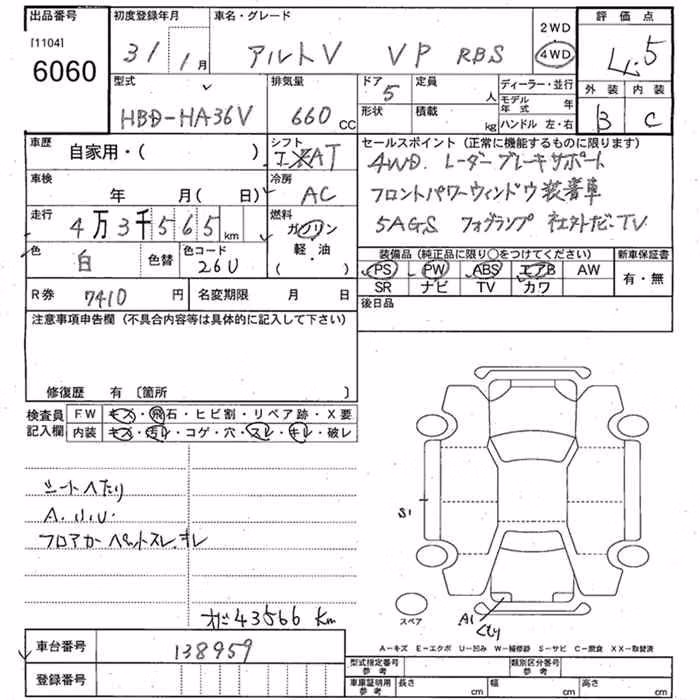 出品番号 初度登録年月 車名・グレード 2WD 評価点
[1104] 31 / 1月 アルトV VP RBS 4WD 4.5
6060
型式 排気量 ドア 定員 ディーラー・並行 外装 内装
HBD-HA36V 660cc 5 人 モデル年式 年 B C
形状 積載 kg ハンドル 左・右
車歴 自家用・( ) シフト AT セールスポイント(正常に機能するものに限ります)
4WD. レーダーブレーキサポート
車検 年 月( 日) 冷房 AC フロントパワーウィンドウ装着車
走行 4万3千565km 燃料 ガソリン 軽・油 ( ) 5AGS フォグランプ 社外ナビ.TV
色 白 色替 色コード 26U
装備品(純正品に限り○をつけてください) 新車保証書
PS PW ABS エアB AW 有・無
SR ナビ TV カワ
R券 7410円 名変期限 月 日 後日品
注意事項申告欄(不具合内容等は具体的に記入して下さい)
修復歴 有 〔箇所 〕
検査員記入欄 FW キズ・飛石・ヒビ割・リペア跡・X要
内装 キズ・汚レ・コゲ・穴・スレ・キレ・破レ
シートヘたり
フロアカーペットスレ.キレ
S1
43566 Km
スペア A1
A-キズ E-エクボ U-凹み W-補修跡 S-サビ C-腐食 XX-取替済
車台番号 138959
登録番号
型式指定番号 参考 類別区分番号 参考
車庫証明用 参考 長さ cm 幅 cm 高さ cm